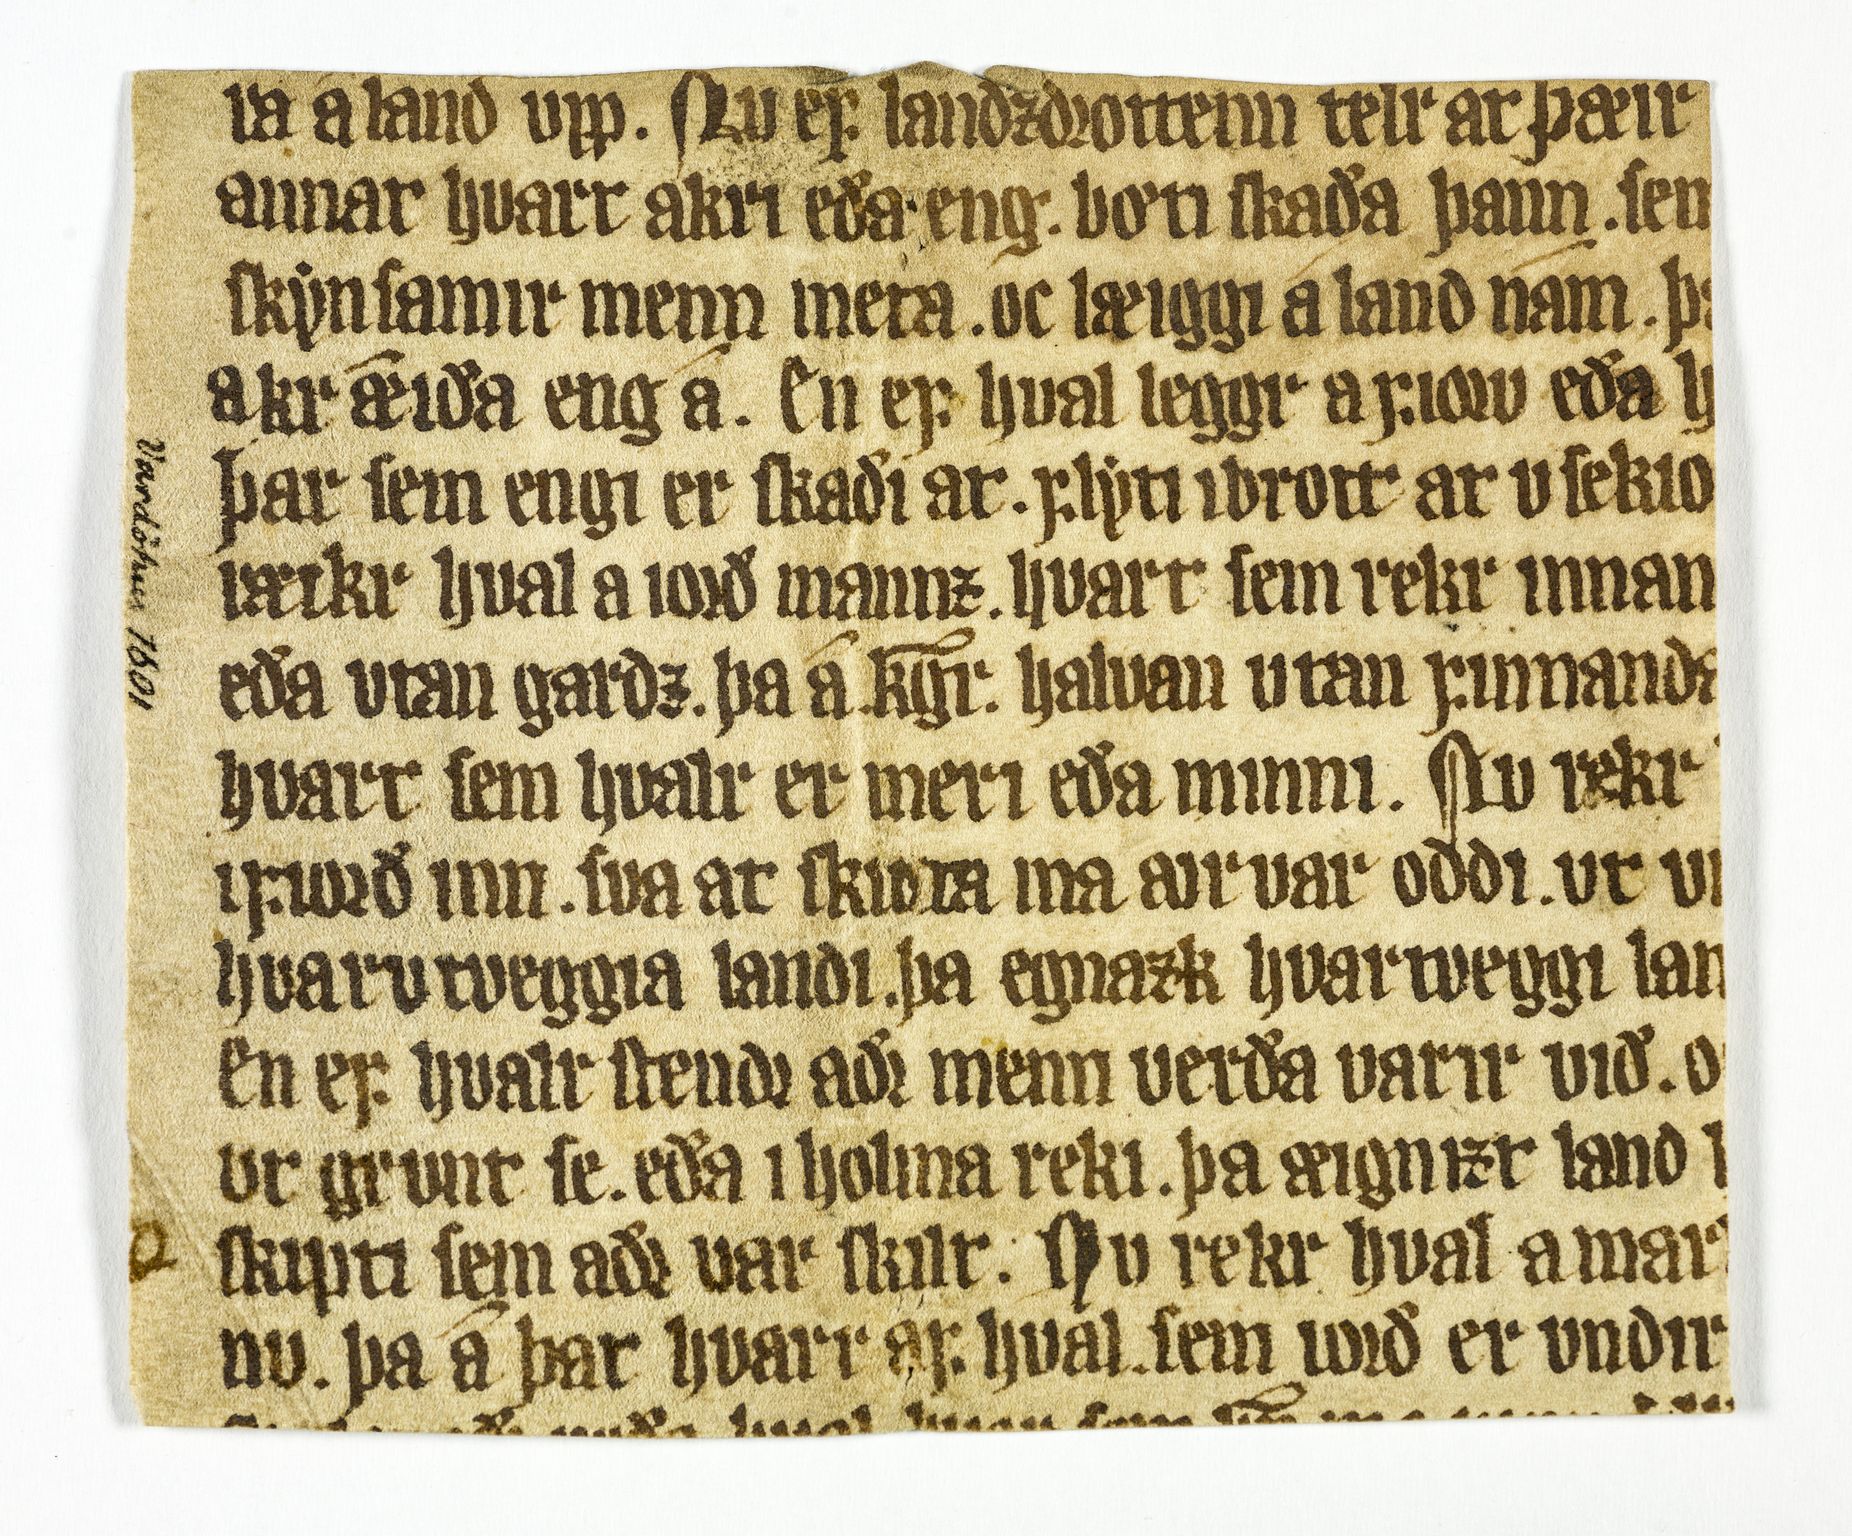 ra a land upp. Nu ef landzdrottenn telr at þæir
annat hvart akri eða eng. bøti skaða þann. sem
skynsamir menn meta. oc læiggi a land nám. þa
akr æiða eng á. En ef hval leggr a fiorv eða
þar sem engi er skaði at. flyti ibrott at usekio
rækr hval a iorð mannz. hvart sem rekr innan
eða utan gardz. þa á kgr. halvan utan finnanda
hvart sem hvalr er meri eða minni. Nu rekr
ifiorð inn. sva at skiota ma orvar oddi. ut
hvarutveggia landi. þa egnazk hvartveggi lan
En ef hvalr stendr aðr menn verða varir við.
ut grunt se. eða i holma reki. þa æignizt land
skipti sem aðr var skilt. Nu rekr hval a mar
nu. þa á þat hvarr af hval. sem iorð er undir
Vardøhus 1601